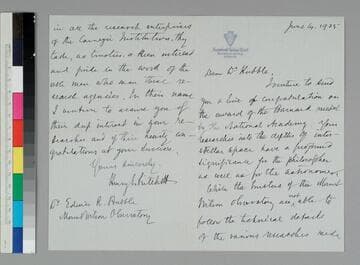 June 4, 1935
Dear Dr Hubble,
I write to send
you a line of congratulation on
the award of the Barnard medal
by the National Academy. Your
researches into the depths of inter
stellar space have a profound
significance for the philosopher
as well as for the astronomer.
While the trustees of the Mount
Wilson Observatory are not able to
follow the technical details
of the various researches made
in all the research enterprises
of the Carnegie Institution, they
take, as trustees, a keen interest
and pride in the work of the
men who man these re-
search agencies. In their name
I venture to assure you of
their deep interest in your re-
searches and of their hearty con-
gratulations at your success.
Yours sincerely,
Henry S. Pritchett
Dr. Edwin P. Hubble
Mount Wilson Observatory